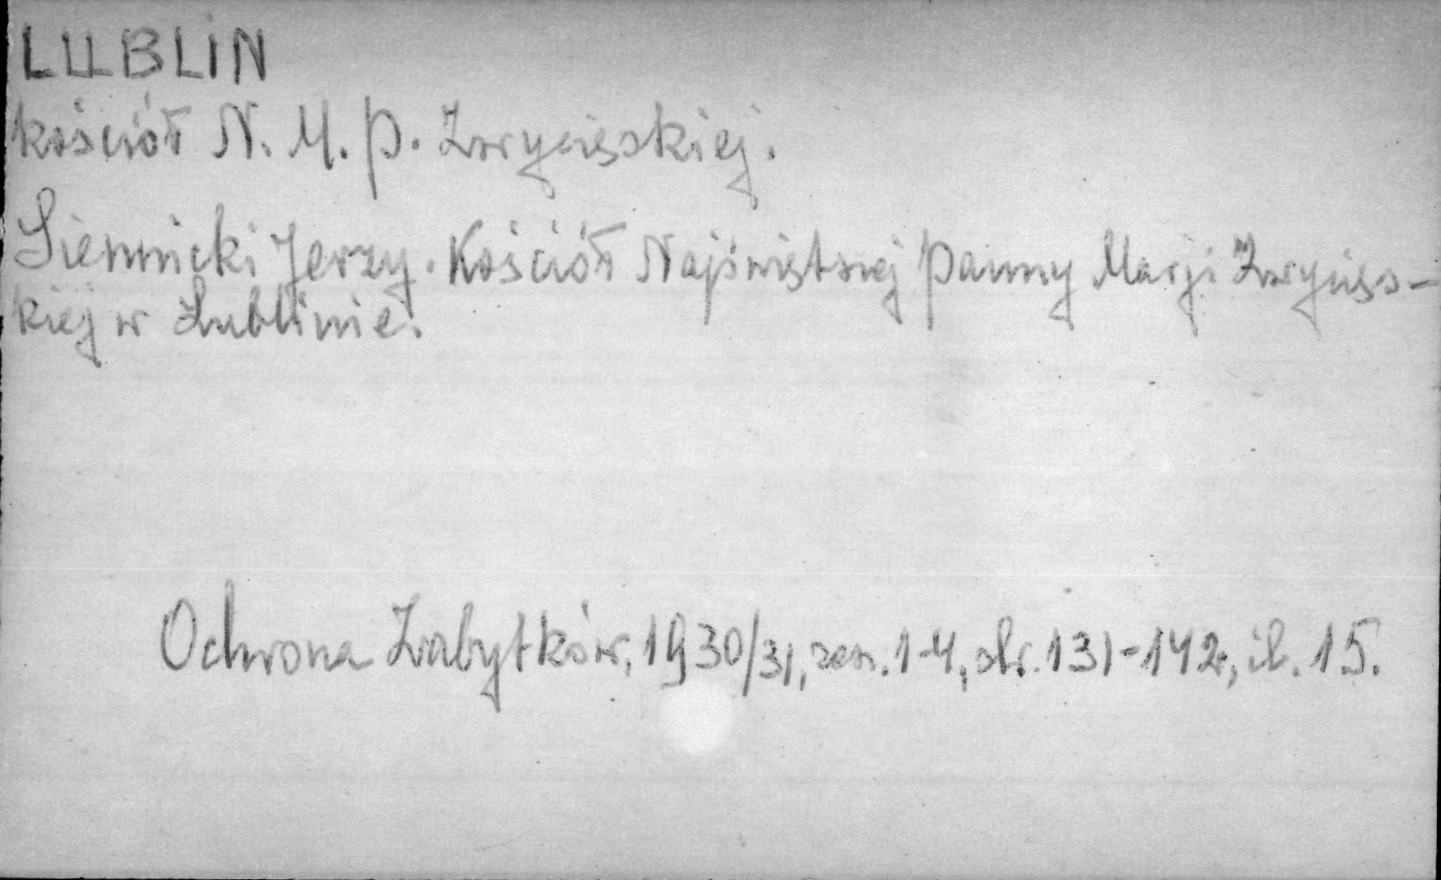 LUBLIN
kościół N. M. P. Zwycięskiej.
Siennicki Jerzy. Kościół Najświętszej Panny Marji Zwycięs-
kiej w Lublinie.
Ochrona Zabytków, 1930/31, zesz. 1-4, str. 131-142, il. 15.